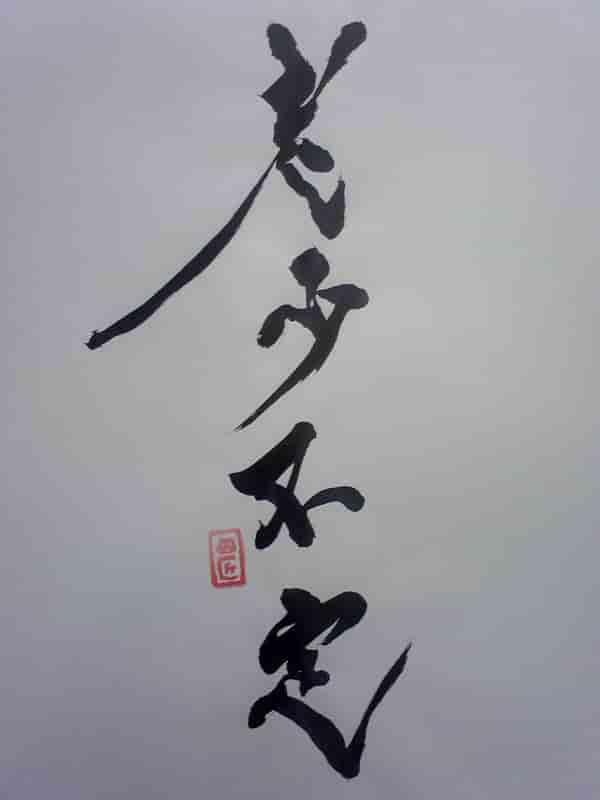 老少不定